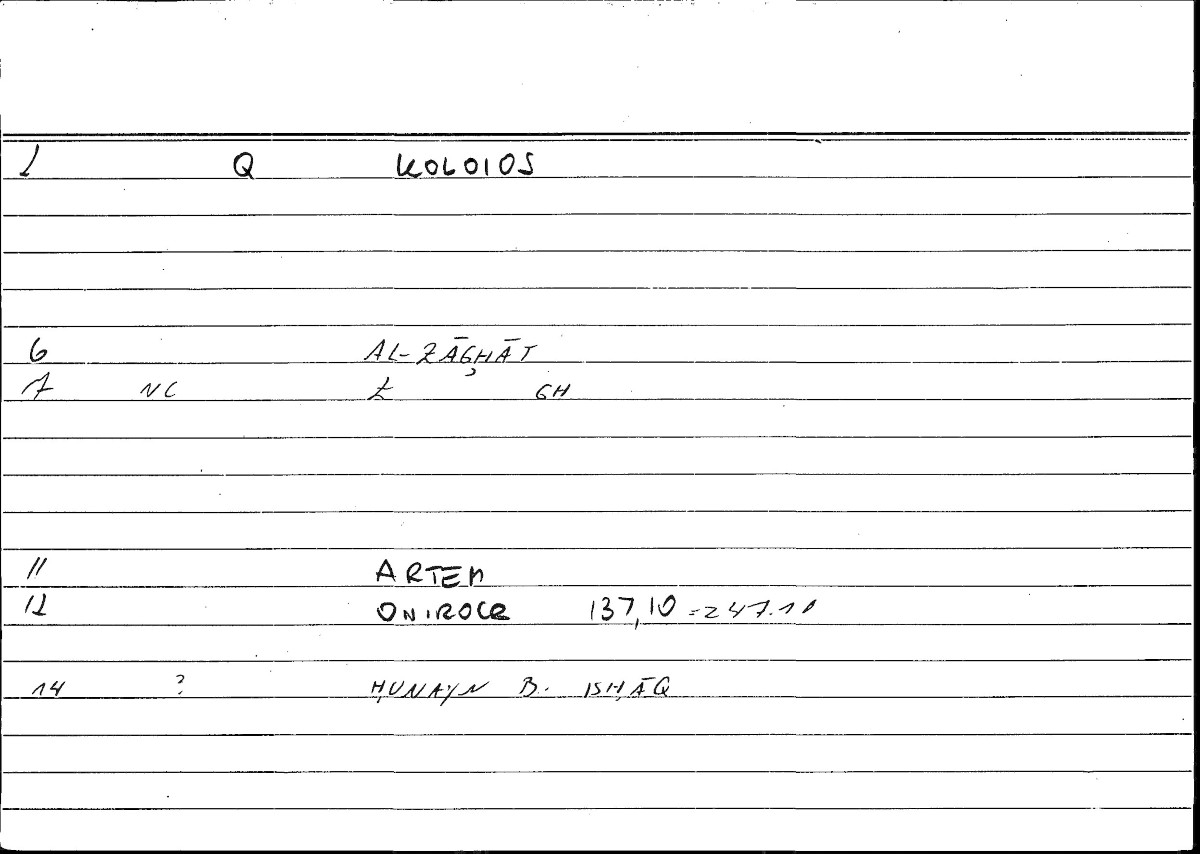 1 Q KOLOIOS
6 AL-ZĀGHĀT
7 NC Z GH
11 ARTEM
12 ONIROCR 137,10 = 247.10
14 ? ḤUNAYN B. ISḤĀQ